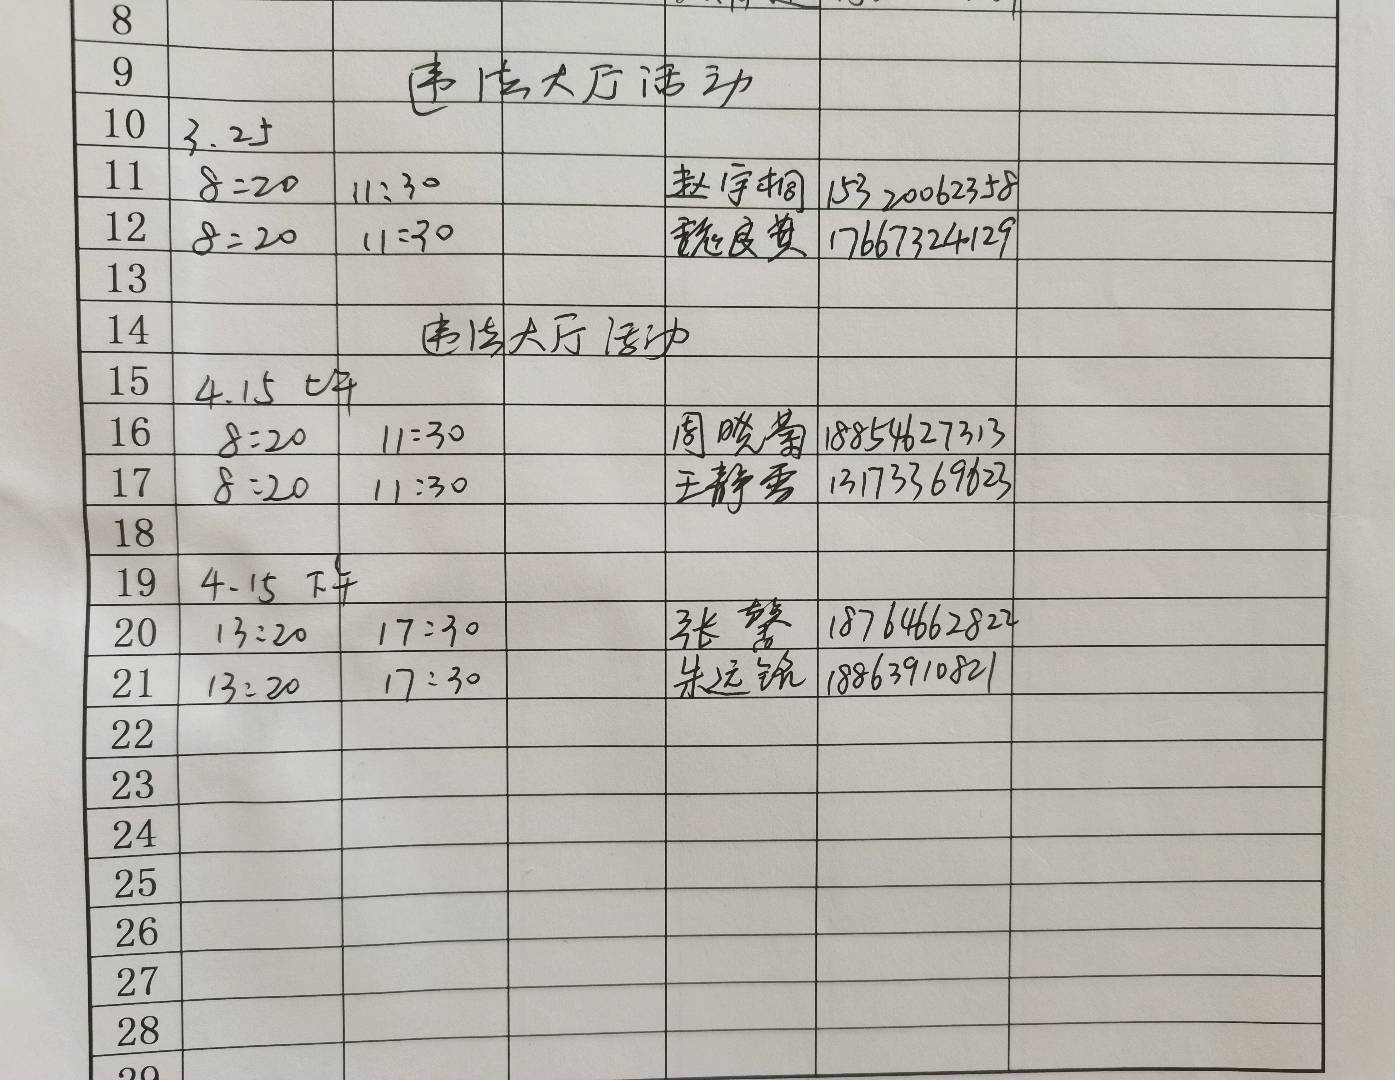 8
9 违法大厅活动
10 3.25
11 8:20 11:30 赵宇桐 15320062358
12 8:20 11:30 魏良英 17667324129
13
14 违法大厅活动
15 4.15 上午
16 8:20 11:30 周晓菊 18854627313
17 8:20 11:30 王静雪 13173369623
18
19 4.15 下午
20 13:20 17:30 张馨 18764662822
21 13:20 17:30 朱远铭 18863910821
22
23
24
25
26
27
28
29